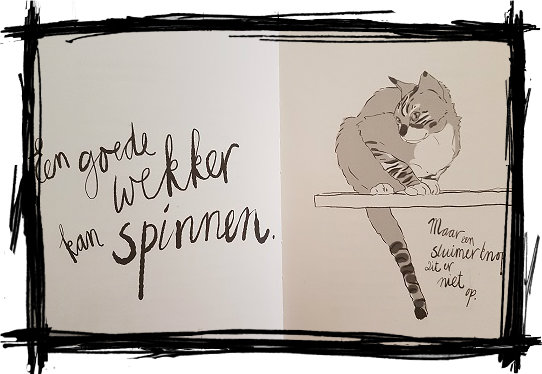 Een goede
wekker
kan spinnen.
Maar een
sluimerknop
zit er
niet
op.